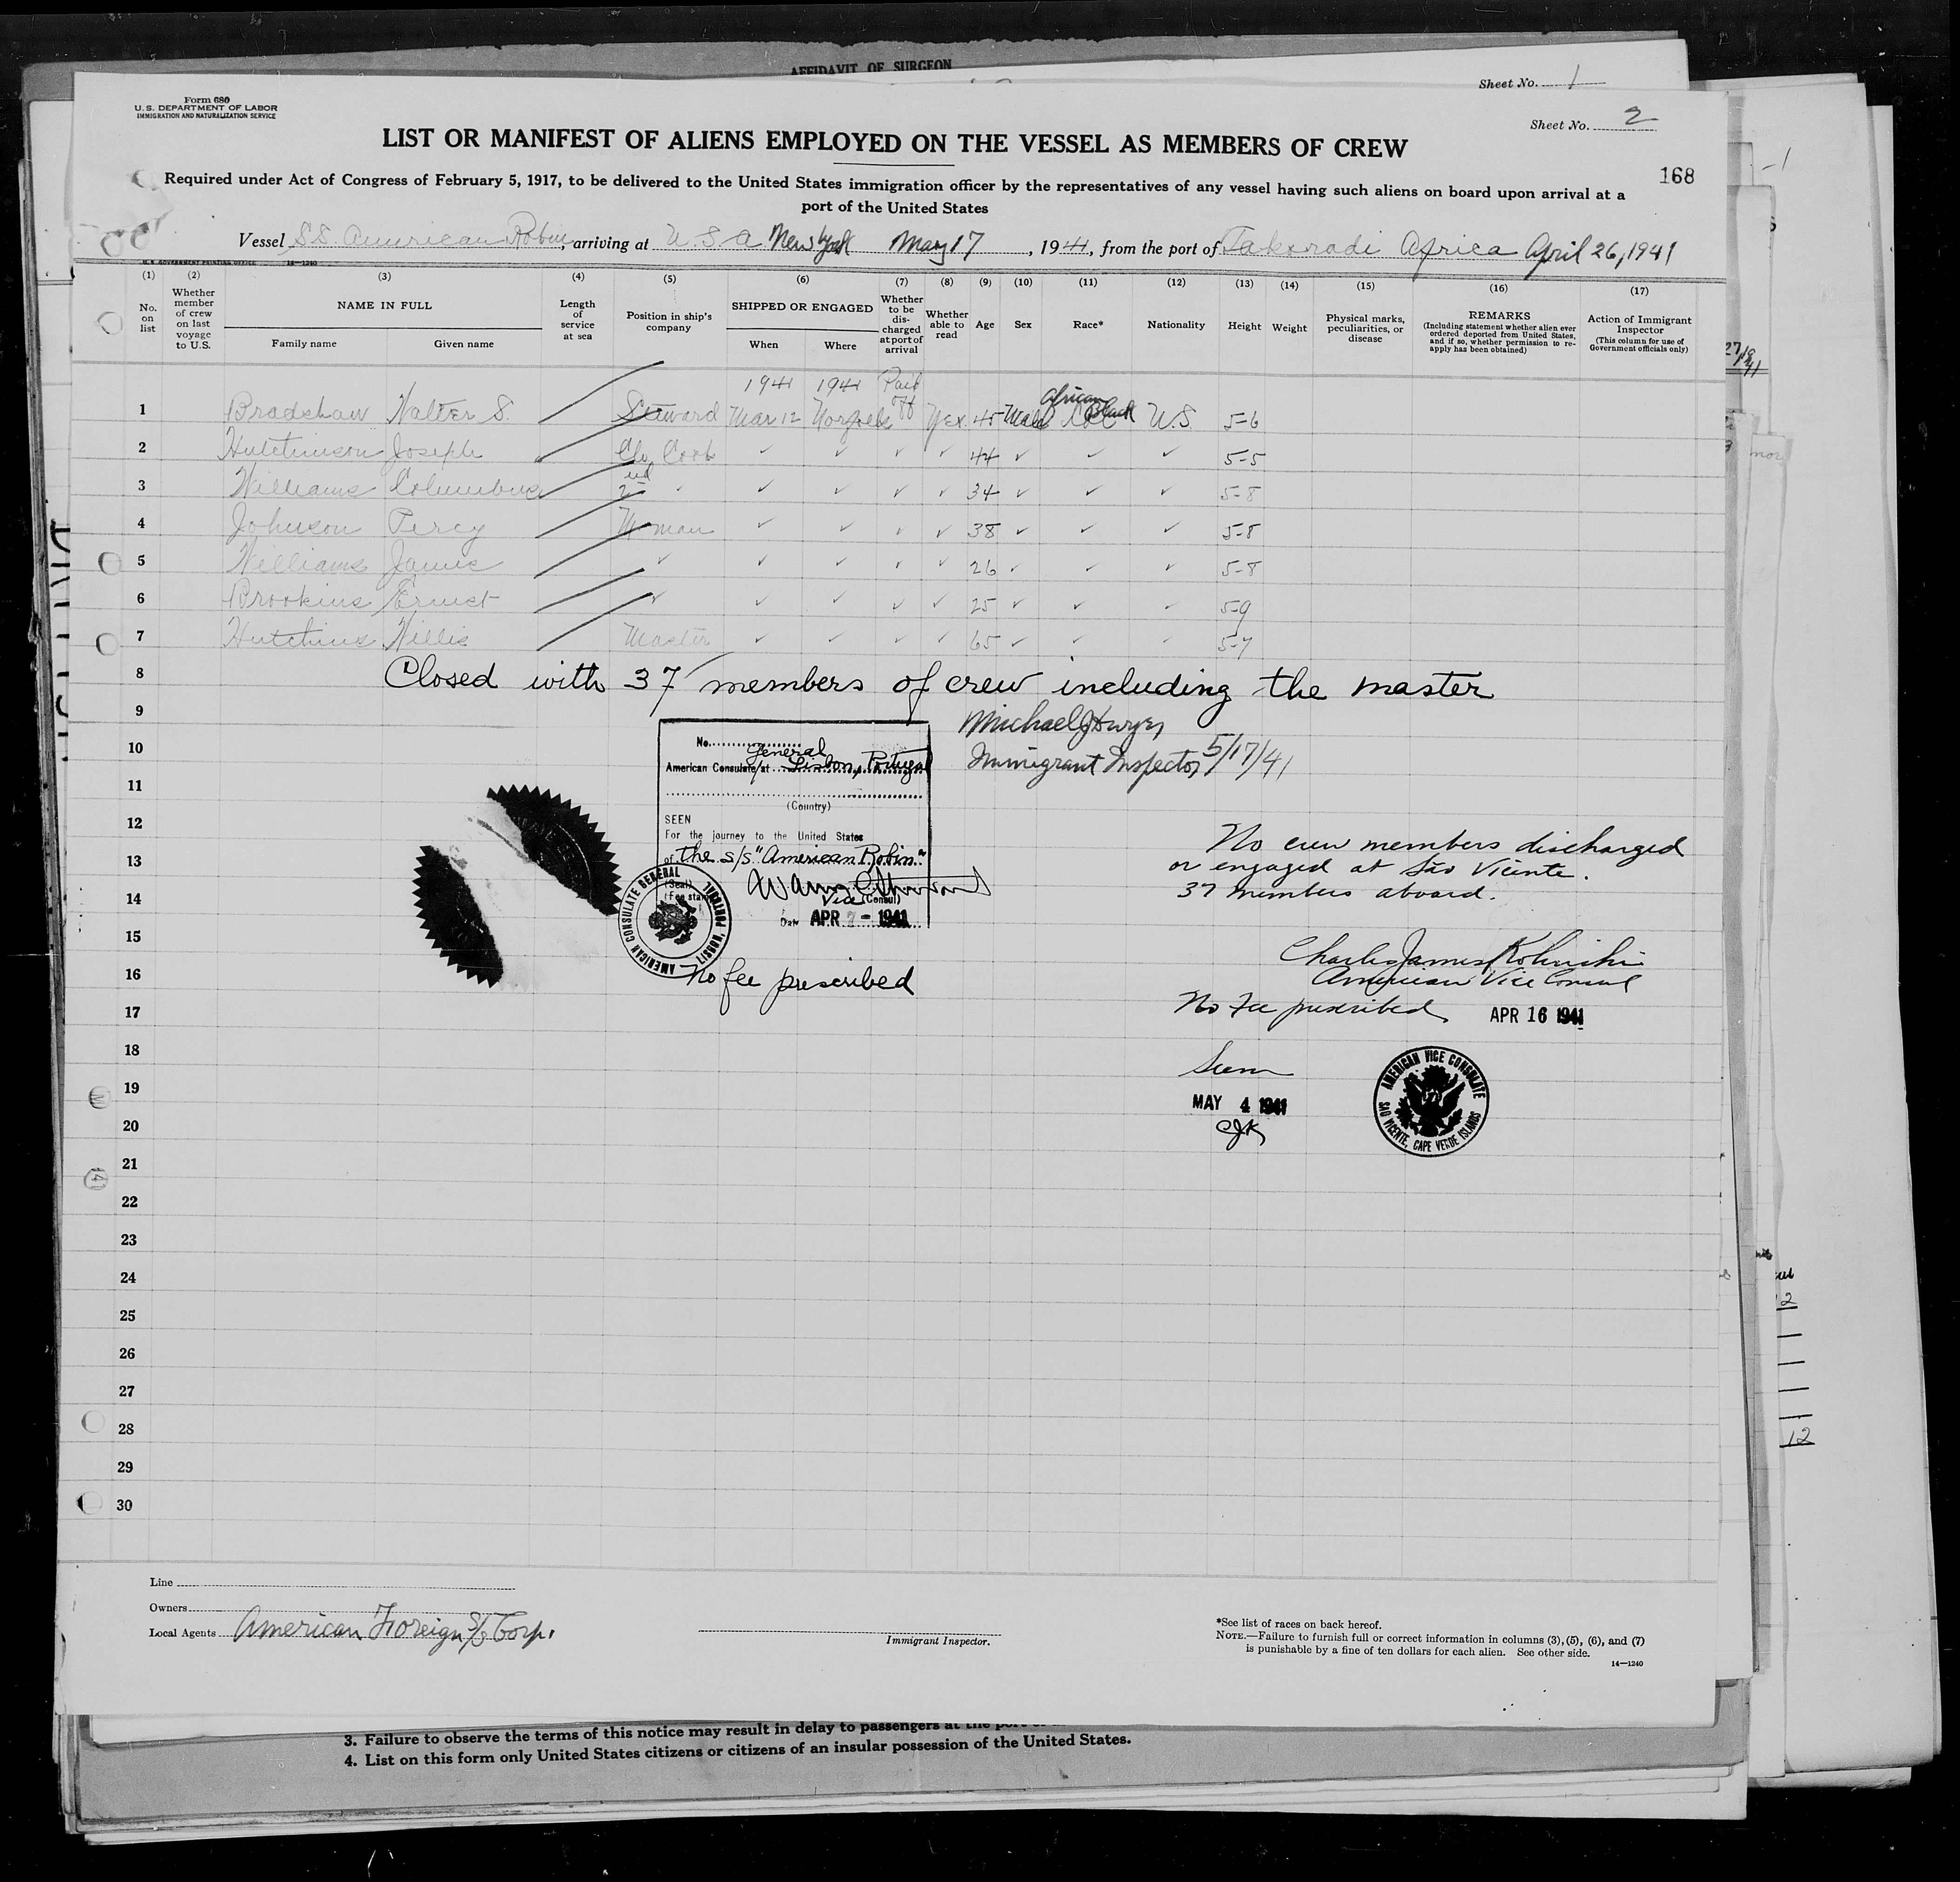 AFFIDAVIT OF SURGEON
Sheet No. 1
Form 680
U. S. DEPARTMENT OF LABOR
IMMIGRATION AND NATURALIZATION SERVICE
Sheet No. 2
LIST OR MANIFEST OF ALIENS EMPLOYED ON THE VESSEL AS MEMBERS OF CREW
168
Required under Act of Congress of February 5, 1917, to be delivered to the United States immigration officer by the representatives of any vessel having such aliens on board upon arrival at a
port of the United States
Vessel S.S. American Robin, arriving at U.S.A. New York May 17, 1941, from the port of Takoradi Africa April 26, 1941
U.S. GOVERNMENT PRINTING OFFICE 14—1240
(1) (2) (3) (4) (5) (6) (7) (8) (9) (10) (11) (12) (13) (14) (15) (16) (17)
No. on list
Whether member of crew on last voyage to U.S.
NAME IN FULL
Family name Given name
Length of service at sea
Position in ship's company
SHIPPED OR ENGAGED
When Where
Whether to be discharged at port of arrival
Whether able to read
Age
Sex
Race*
Nationality
Height
Weight
Physical marks, peculiarities, or disease
REMARKS
(Including statement whether alien ever ordered deported from United States, and if so, whether permission to reapply has been obtained)
Action of Immigrant Inspector
(This column for use of Government officials only)
1941 1941 Paid African
1 Bradshaw Walter S. Steward Mar 12 Norfolk off Yes 45 Male Col Black U.S. 5-6
2 Hutchinson Joseph Ch. Cook ✓ ✓ ✓ ✓ 44 ✓ ✓ ✓ 5-5
3 Williams Columbus 2nd ✓ ✓ ✓ ✓ ✓ 34 ✓ ✓ ✓ 5-8
4 Johnson Percy M man ✓ ✓ ✓ ✓ 38 ✓ ✓ ✓ 5-8
5 Williams James ✓ ✓ ✓ ✓ ✓ 26 ✓ ✓ ✓ 5-8
6 Brookins Ernest ✓ ✓ ✓ ✓ ✓ 25 ✓ ✓ ✓ 5-9
7 Hutchins Willis Master ✓ ✓ ✓ ✓ 65 ✓ ✓ ✓ 5-7
8 Closed with 37 members of crew including the master
9 Michael J Dwyer
10 Immigrant Inspector 5/17/41
No.
General
American Consulate at Lisbon, Portugal
11
(Country)
12 SEEN
For the journey to the United States
13 of the s/s "American Robin"
(Seal)
14 (Fee stamp)
Vice (Consul)
Date APR 7 - 1941
AMERICAN CONSULATE GENERAL LISBON, PORTUGAL
No fee prescribed
No crew members discharged
or engaged at São Vicente.
37 members aboard.
15
Charles James
16 American Vice Consul
17 No fee prescribed APR 16 1941
18 Seen
19 MAY 4 1941
20 CJK
AMERICAN VICE CONSULATE
SAO VICENTE, CAPE VERDE ISLANDS
21
22
23
24
25
26
27
28
29
30
Line
Owners
Local Agents American Foreign S/S Corp.
Immigrant Inspector.
*See list of races on back hereof.
NOTE.—Failure to furnish full or correct information in columns (3), (5), (6), and (7)
is punishable by a fine of ten dollars for each alien. See other side.
14—1240
3. Failure to observe the terms of this notice may result in delay to passengers at the port of
4. List on this form only United States citizens or citizens of an insular possession of the United States.
12